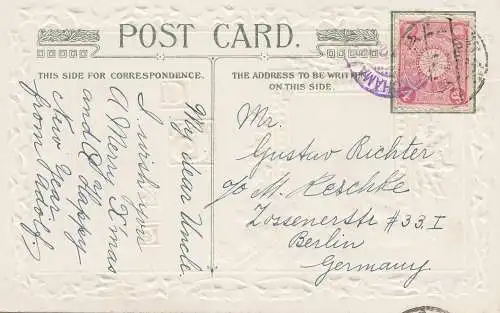 POST CARD.
THIS SIDE FOR CORRESPONDENCE.
THE ADDRESS TO BE WRITTEN
ON THIS SIDE.
My dear Uncle.
I wish you
A Merry X'mas
and a Happy
New Year.
from Rudolf.
Mr.
Gustav Richter
c/o M. Reschke
Zossenerstr #33. I
Berlin
Germany